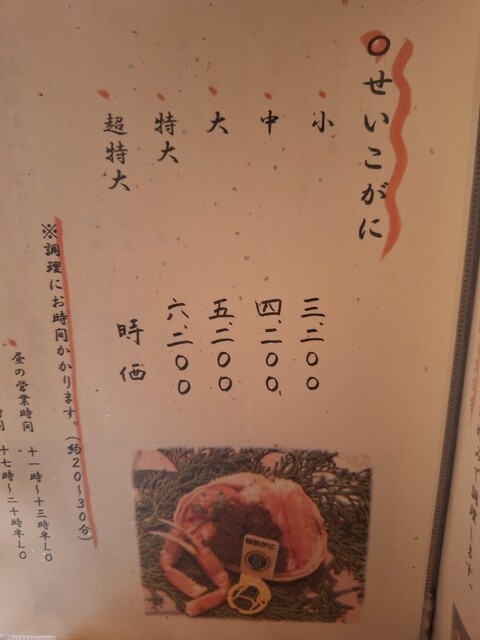 ○せいこがに
小 三、二〇〇
中 四、二〇〇
大 五、二〇〇
特大 六、二〇〇
超特大 時価
※調理にお時間かかります。(約20~30分)
昼の営業時間 十一時~十三時半LO
十七時~二十時半LO